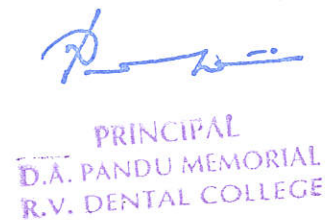 PRINCIPAL
D.A. PANDU MEMORIAL
R.V. DENTAL COLLEGE